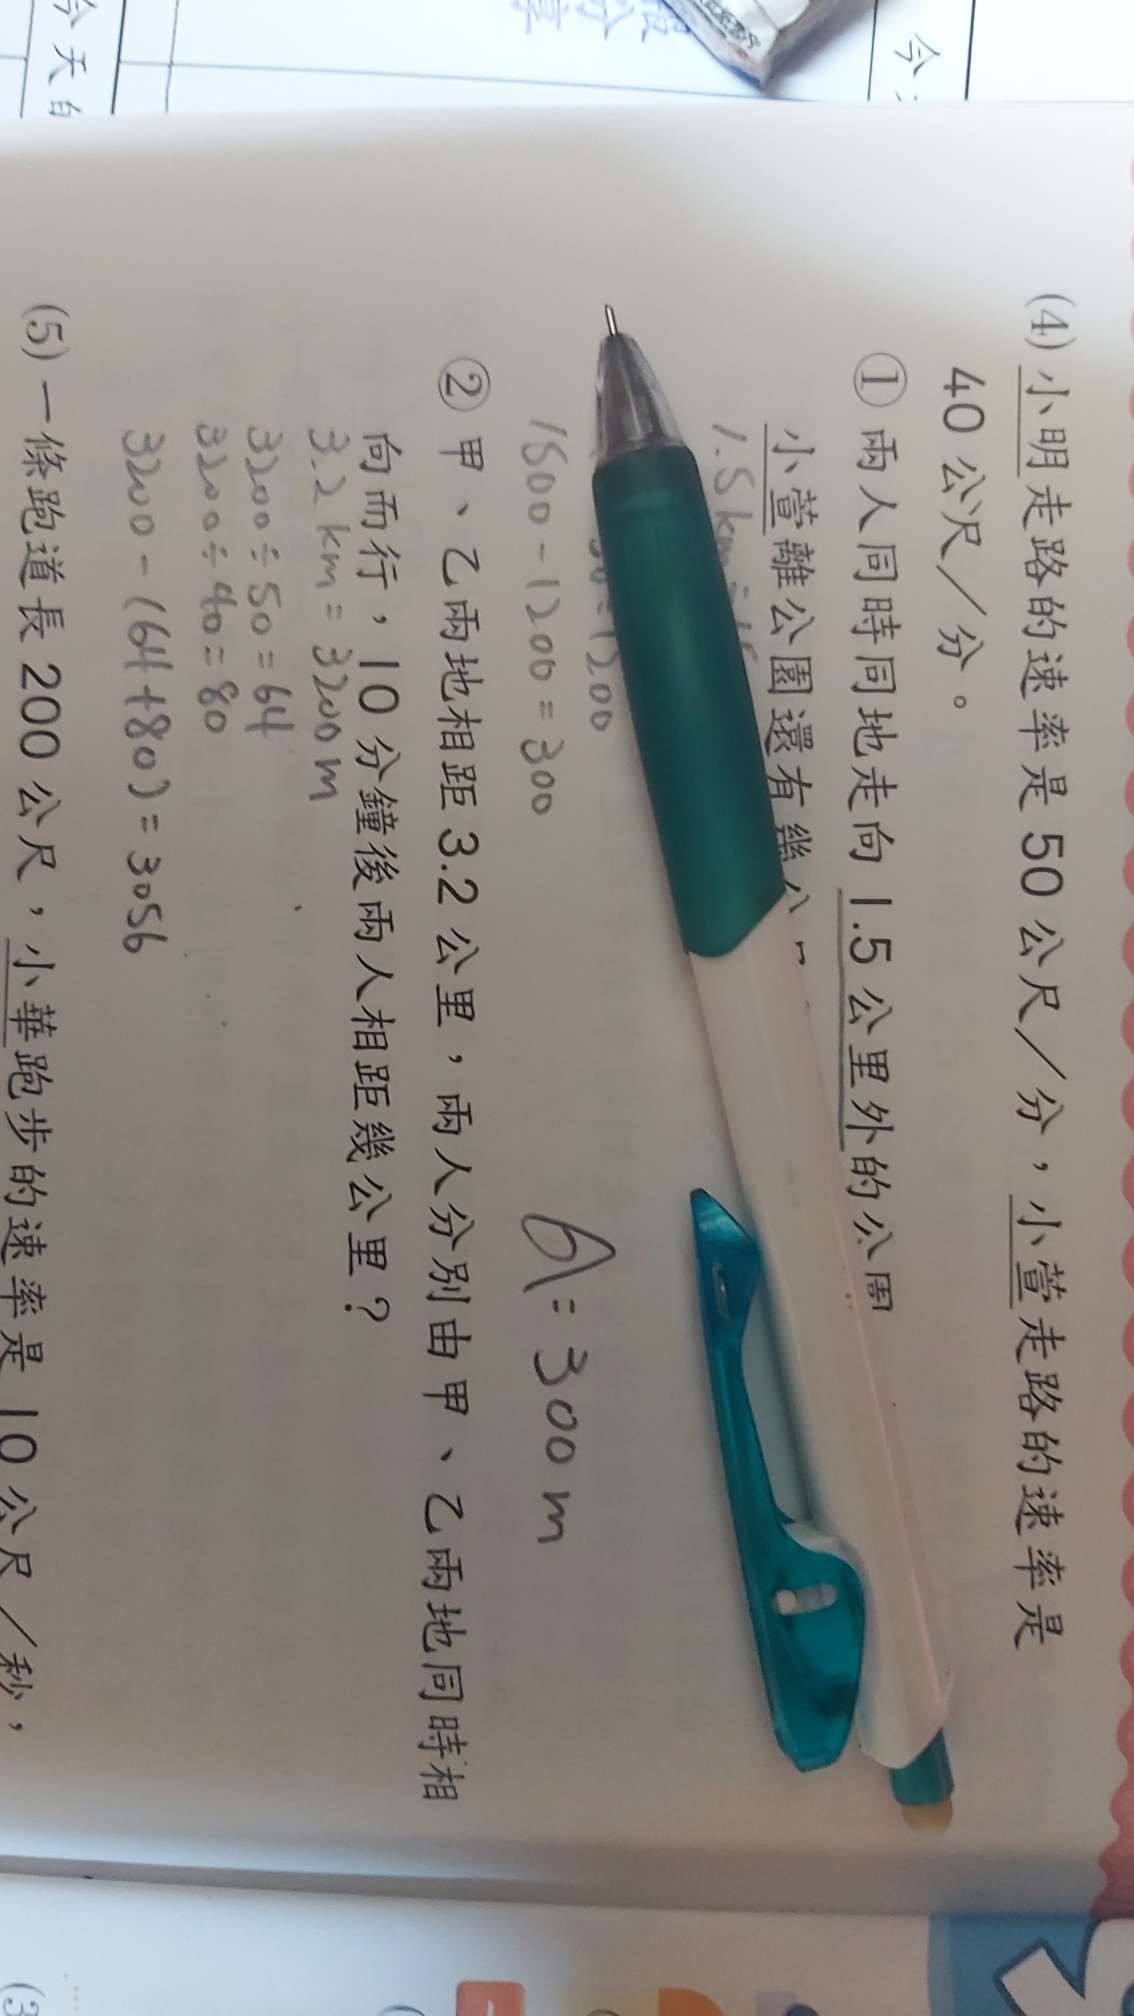 今天的
今
(4) 小明走路的速率是 50 公尺／分，小萱走路的速率是
40 公尺／分。
① 兩人同時同地走向 1.5 公里外的公園
小萱離公園還有幾公
1.5 km
1200
1500-1200=300
A=300m
② 甲、乙兩地相距 3.2 公里，兩人分別由甲、乙兩地同時相
向而行，10 分鐘後兩人相距幾公里？
3.2 km = 3200m
3200÷50=64
3200÷40=80
3200-(64+80)=3056
(5) 一條跑道長 200 公尺，小華跑步的速率是 10 公尺／秒，
(3